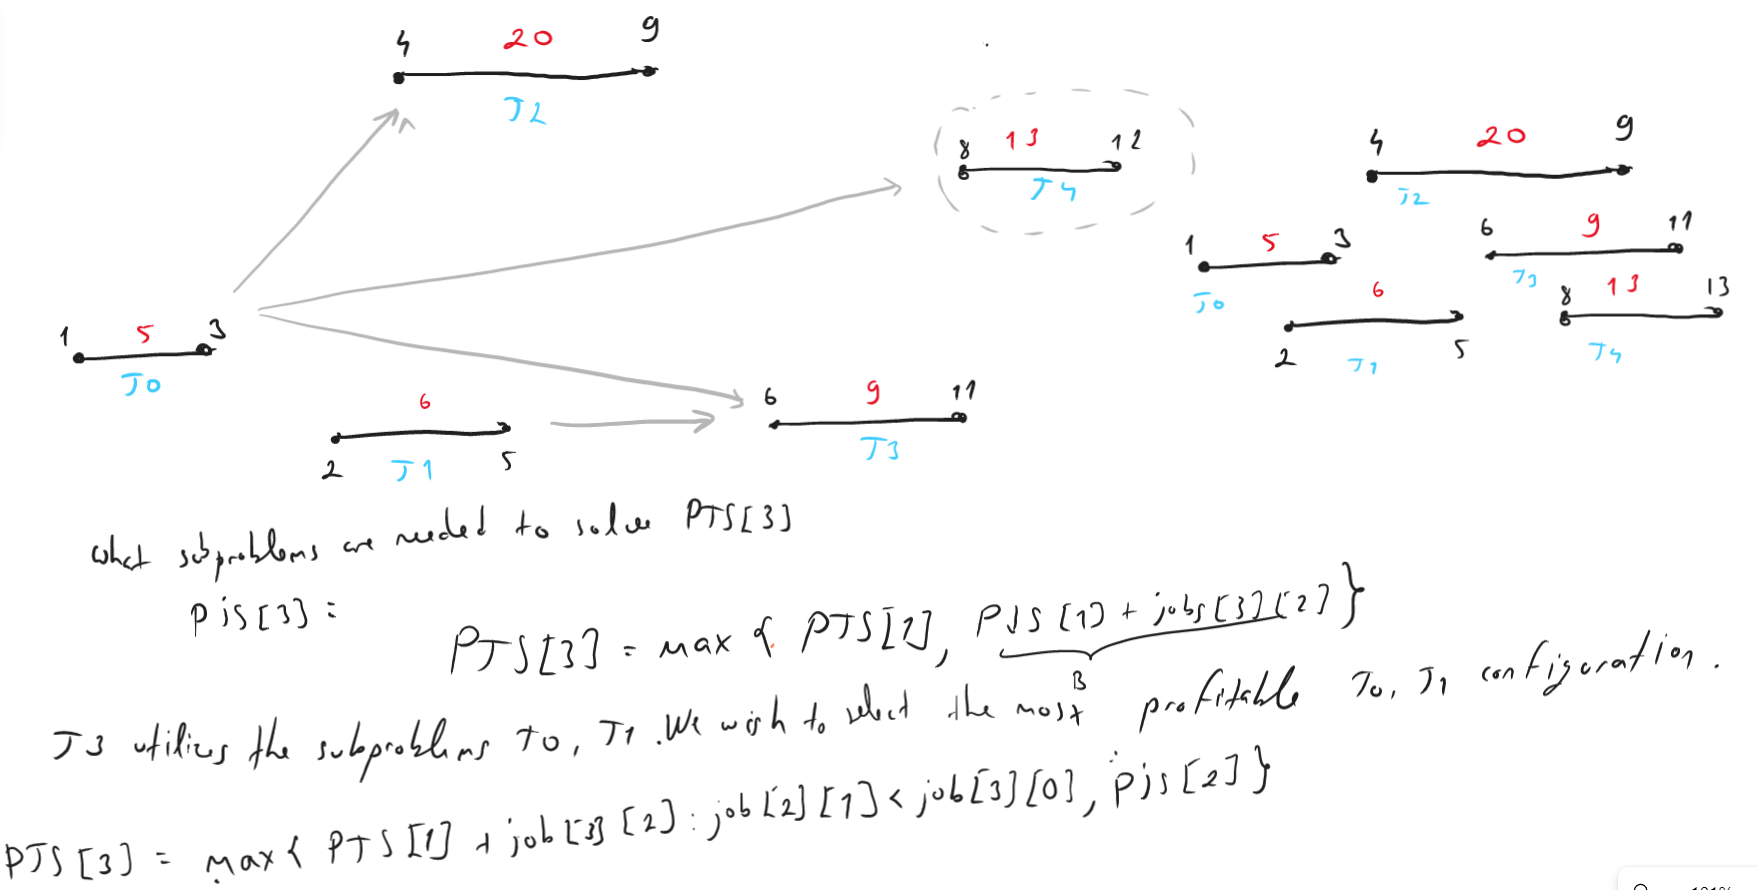 4 20 9
J2
8 13 12
J4
4 20 9
J2
1 5 3
J0
6 9 11
J3
6
2 J1 5
8 13 13
J4
1 5 3
J0
6
2 J1 5
6 9 11
J3
what subproblems are needed to solve PJS[3]
PjS[3] =
PJS[3] = max { PJS[2], PJS[1] + jobs[3][2] }
B
J3 utilizes the subproblems J0, J1. We wish to select the most profitable J0, J1 configuration.
PJS[3] = max { PJS[1] + job[3][2] : job[2][1] < job[3][0], Pjs[2] }